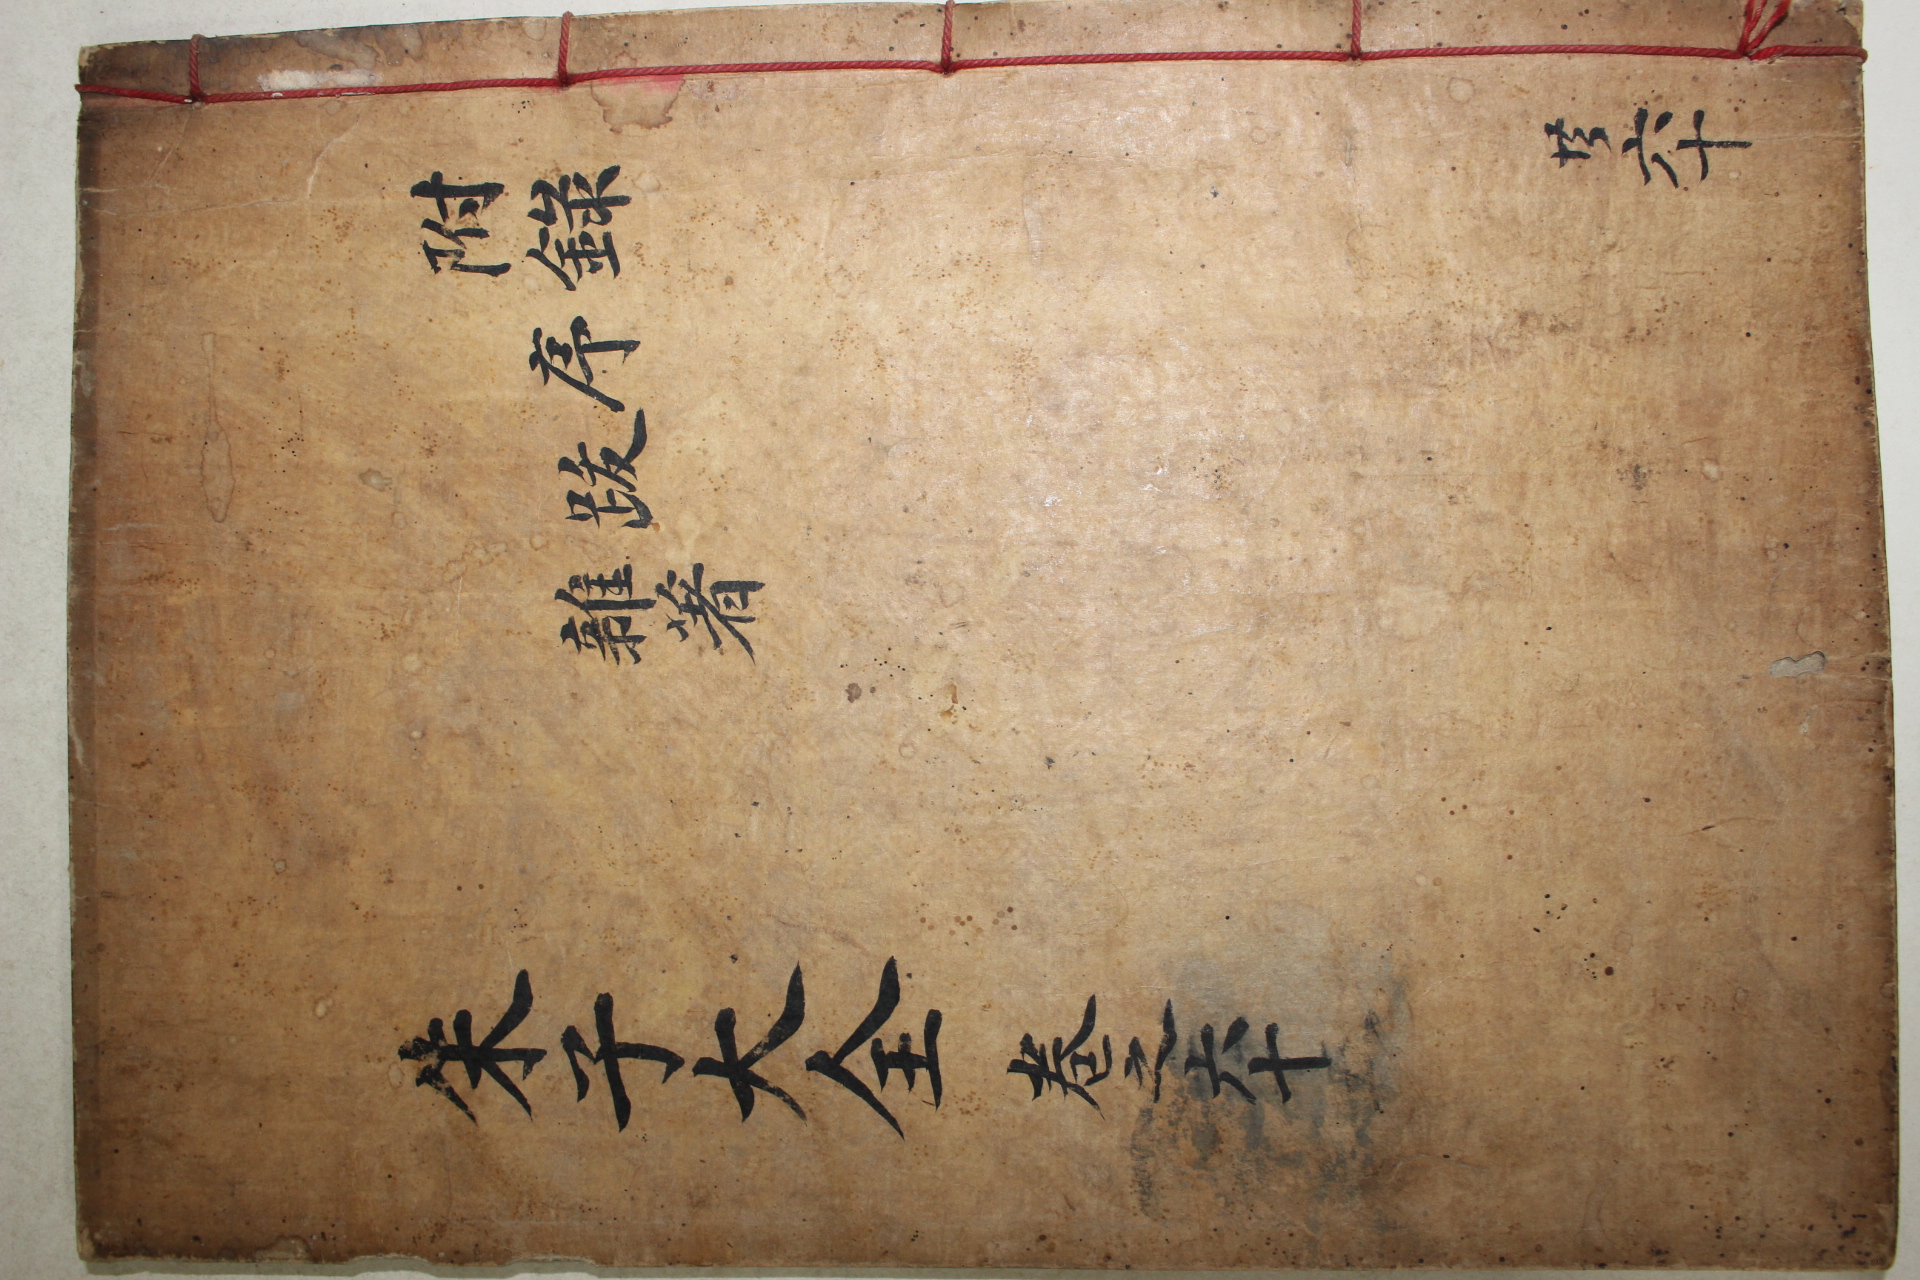 共六十
附錄
序
跋
雜著
朱子大全 卷之六十